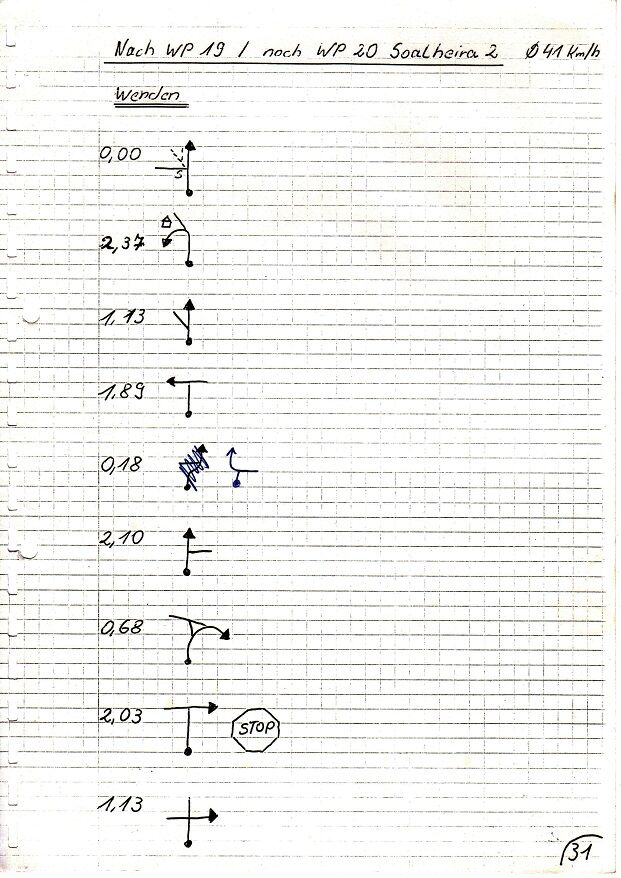 Nach WP 19 / nach WP 20 Soalheira 2 Ø 41 Km/h
Wenden
0,00
S
2,37
1,13
1,89
0,18
2,10
0,68
2,03
STOP
1,13
31